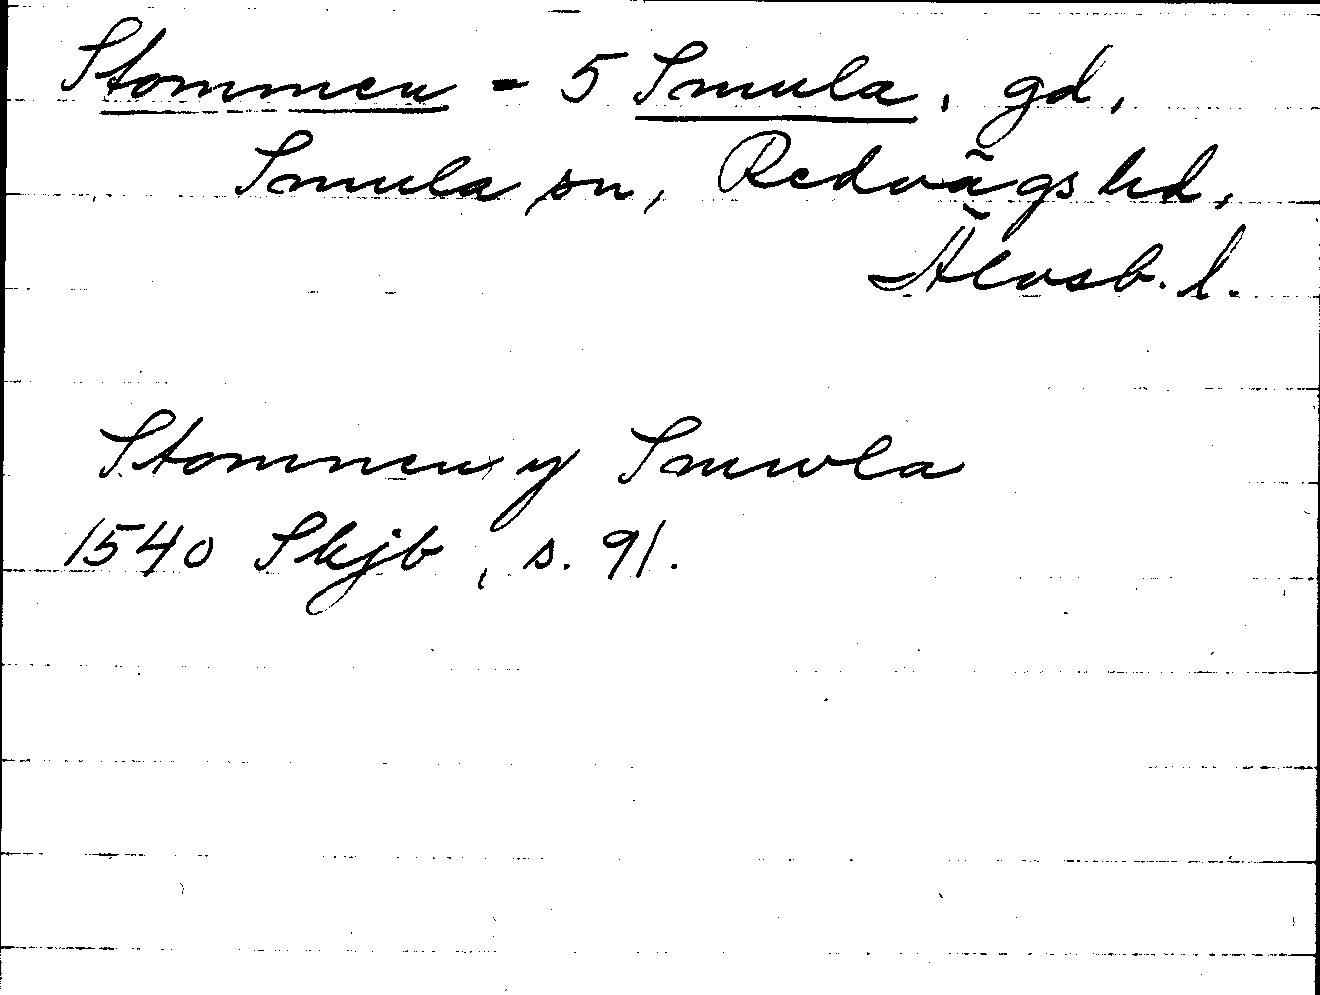 Stommen = 5 Smula, gd,
Smula sn, Redvägs hd,
Älvsb. l.
Stommen y Smwla
1540 Skjb, s. 91.